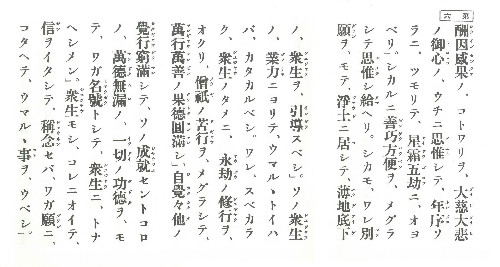 第六
酬因感果ノ、コトワリヲ、大慈大悲
ノ御心ノ、ウチニ思惟シテ、年序ソ
ラニ、ツモリテ、星霜五劫ニ、オヨ
ベリ。シカルニ善巧方便ヲ、メグラ
シテ思惟シ給ヘリ。シカモ、ワレ別
願ヲ、モテ、淨土ニ居シテ、薄地底下
ノ、衆生ヲ、引導スベシ。ソノ衆生
ノ、業力ニヨリテ、ウマルヽトイハ
バ、カタカルベシ。ワレ、スベカラ
ク、衆生ノタメニ、永劫ノ修行ヲ、
オクリ、僧祇ノ苦行ヲ、メグラシテ、
萬行萬善ノ果德圓滿シ、自覺々他ノ
覺行窮滿シテ、ソノ成就セントコロ
ノ、萬德無漏ノ、一切ノ功德ヲ、モ
テ、ワガ名號トシテ、衆生ニ、トナ
ヘシメン。」衆生モシ、コレニオイテ、
信ヲイタシテ、稱念セバ、ワガ願ニ、
コタヘテ、ウマルヽ事ヲ、ウベシ。